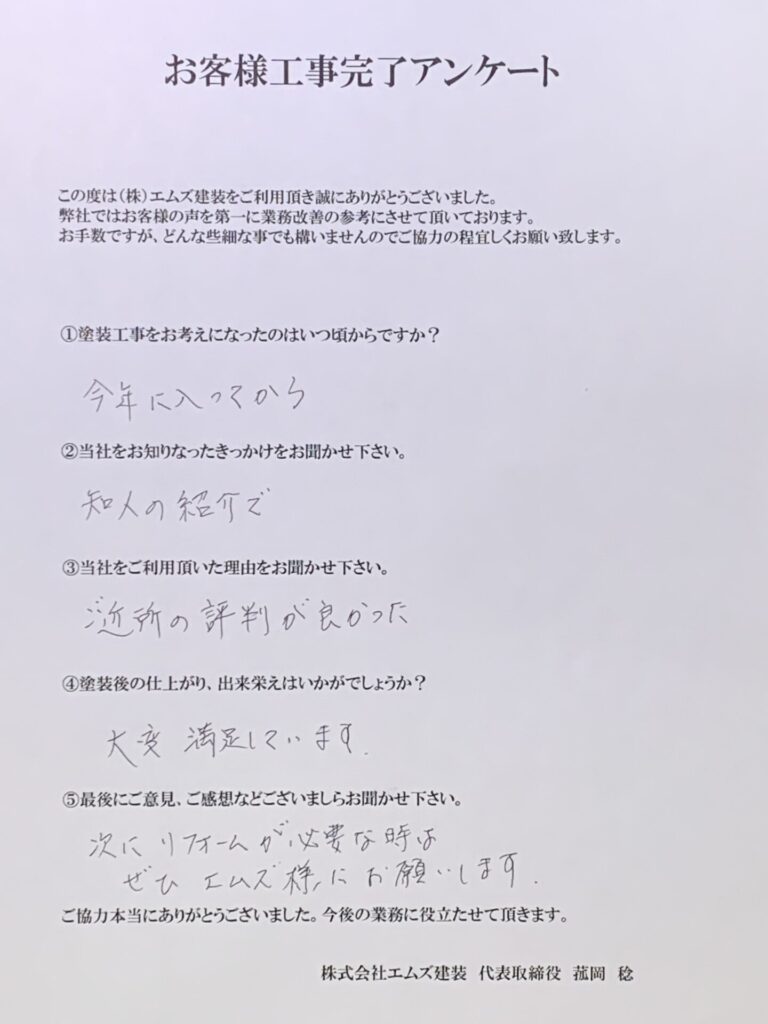 お客様工事完了アンケート
この度は(株)エムズ建装をご利用頂き誠にありがとうございました。
弊社ではお客様の声を第一に業務改善の参考にさせて頂いております。
お手数ですが、どんな些細な事でも構いませんのでご協力の程宜しくお願い致します。
①塗装工事をお考えになったのはいつ頃からですか？
今年に入ってから
②当社をお知りなったきっかけをお聞かせ下さい。
知人の紹介で
③当社をご利用頂いた理由をお聞かせ下さい。
ご近所の評判が良かった
④塗装後の仕上がり、出来栄えはいかがでしょうか？
大変満足しています.
⑤最後にご意見、ご感想などございましらお聞かせ下さい。
次にリフォームが必要な時は
ぜひエムズ様にお願いします.
ご協力本当にありがとうございました。今後の業務に役立たせて頂きます。
株式会社エムズ建装 代表取締役 菰岡 稔